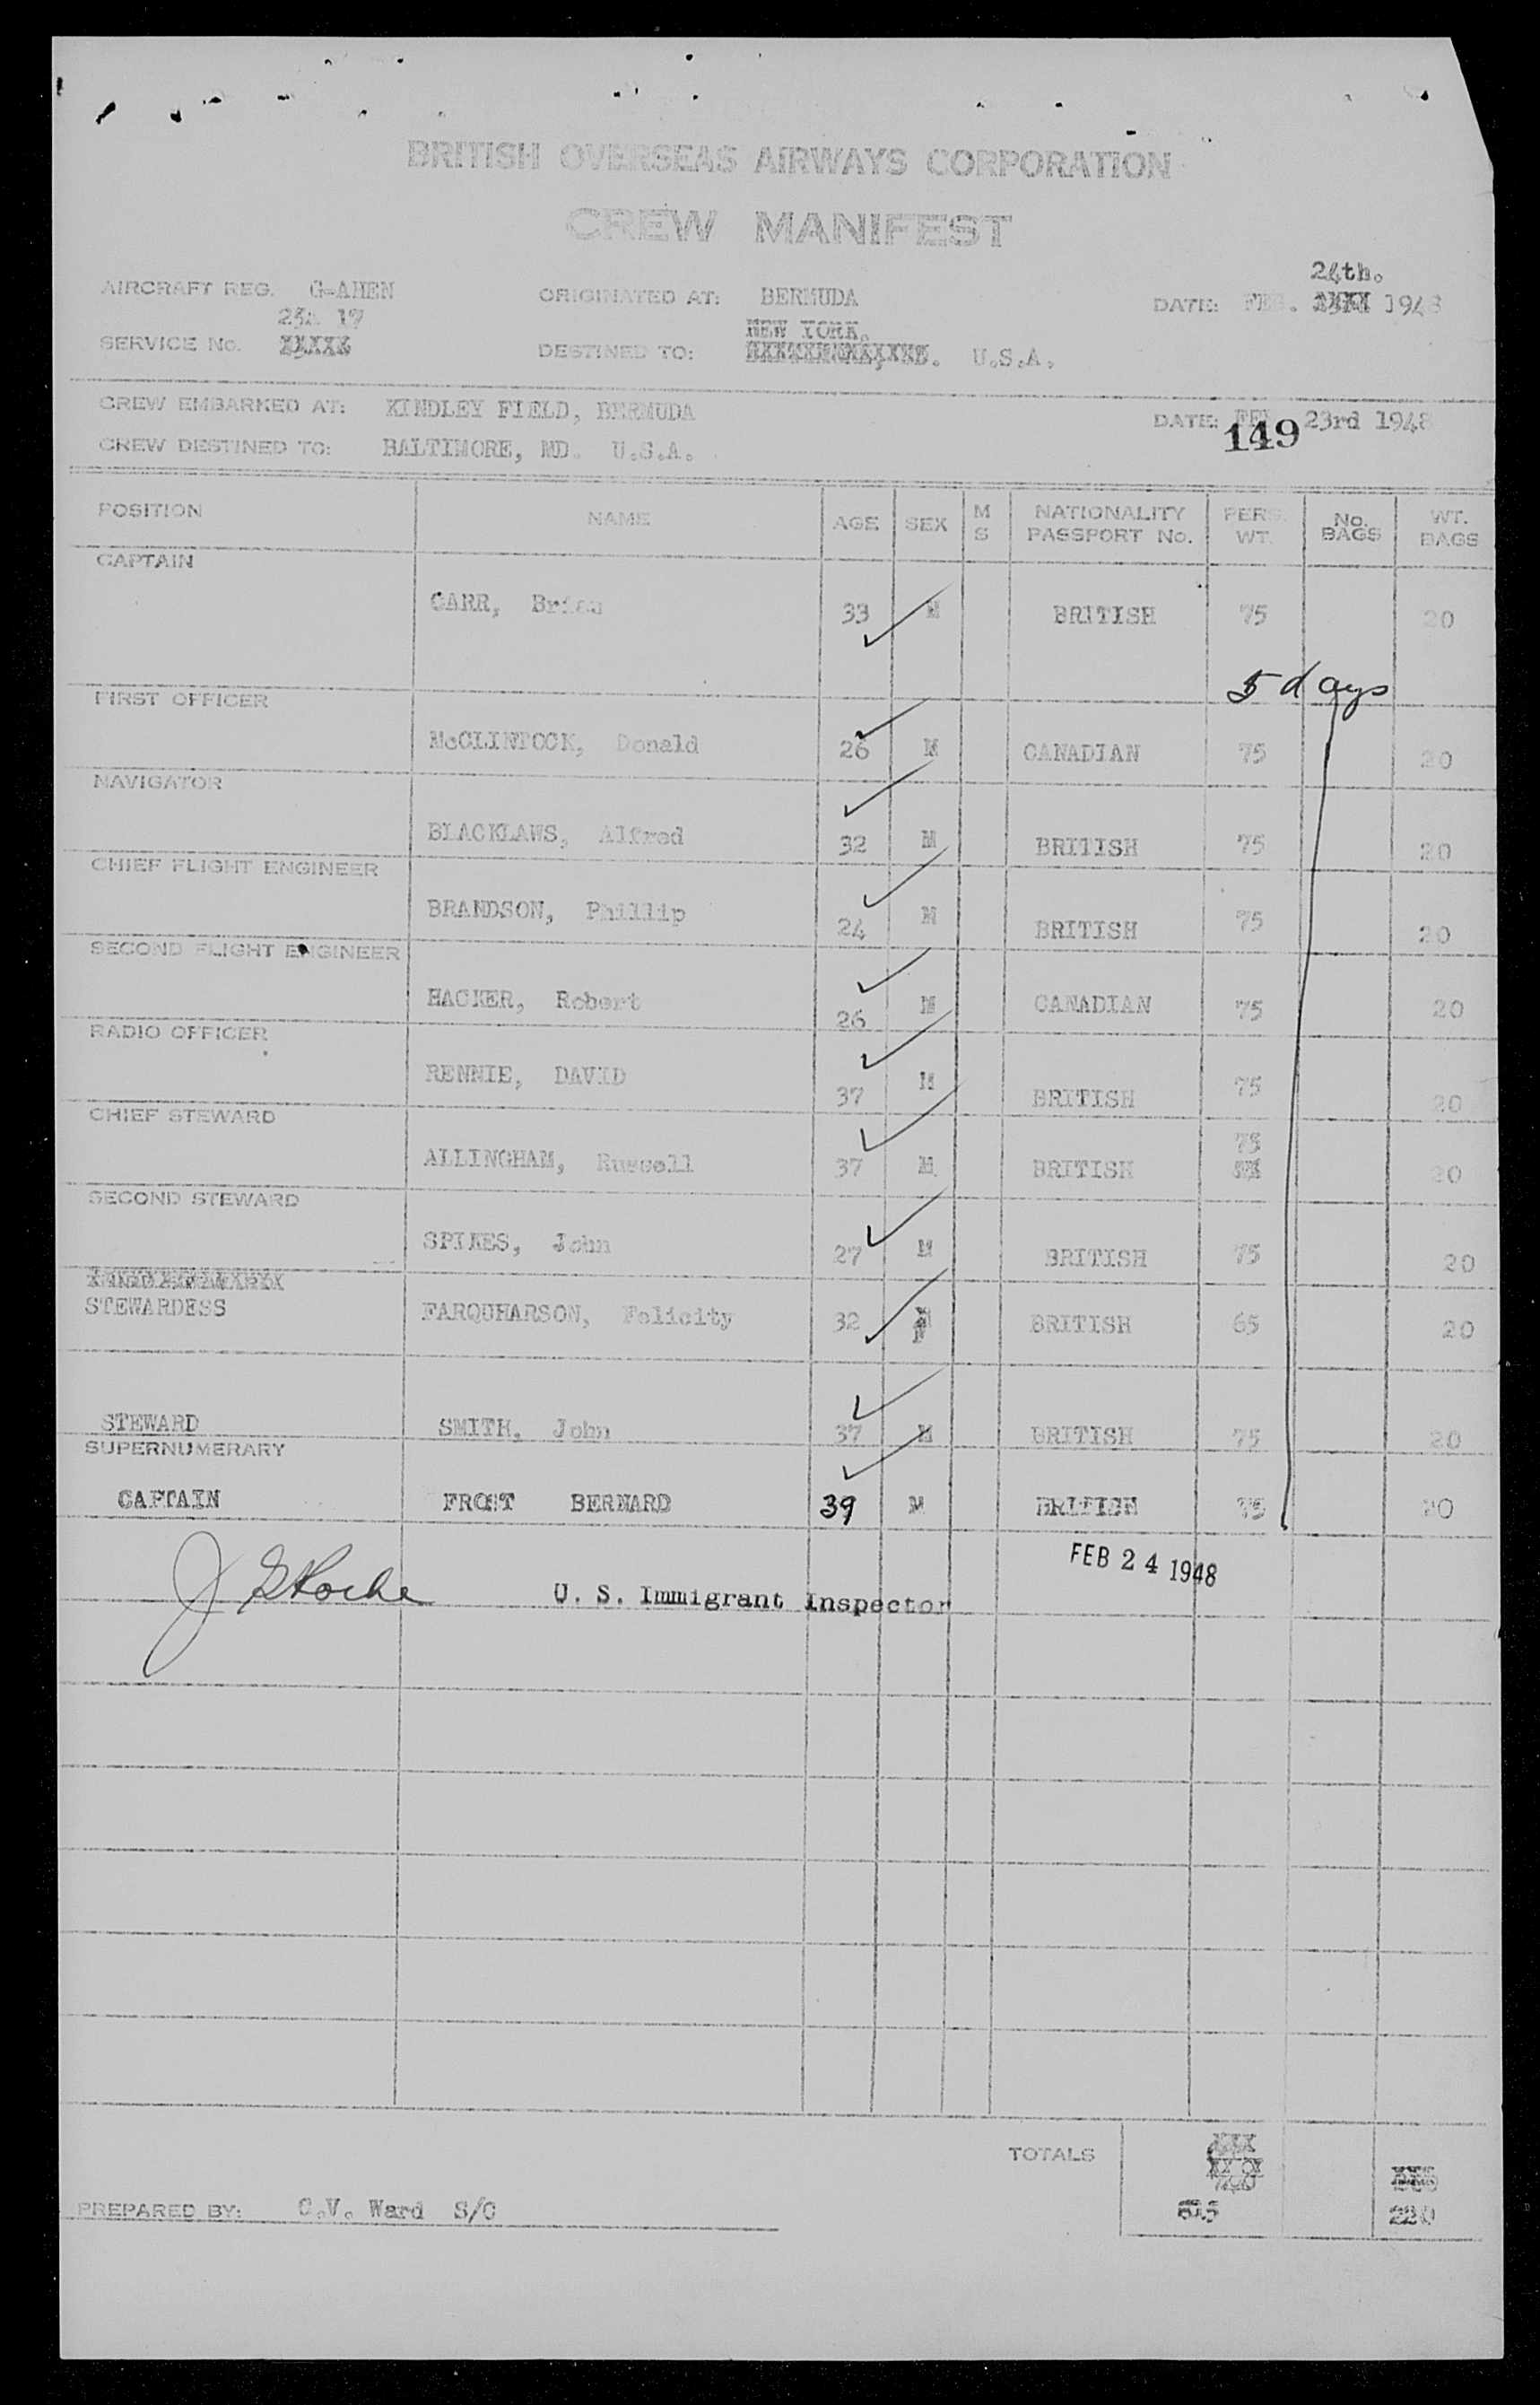 BRITISH OVERSEAS AIRWAYS CORPORATION
CREW MANIFEST
24th.
AIRCRAFT REG. G-AHEN ORIGINATED AT: BERMUDA DATE: FEB. 1948
NEW YORK.
SERVICE No. DESTINED TO: U.S.A.
CREW EMBARKED AT: KINDLEY FIELD, BERMUDA DATE: FEB 23rd 1948
149
CREW DESTINED TO: BALTIMORE, MD. U.S.A.
POSITION NAME AGE SEX M S NATIONALITY PASSPORT No. PERS. WT. No. BAGS WT. BAGS
CAPTAIN
CARR, Brian 33 M BRITISH 75 20
5 days
FIRST OFFICER
McCLINTOCK, Donald 26 M CANADIAN 75 20
NAVIGATOR
BLACKLAWS, Alfred 32 M BRITISH 75 20
CHIEF FLIGHT ENGINEER
BRANDSON, Phillip 24 M BRITISH 75 20
SECOND FLIGHT ENGINEER
HACKER, Robert 26 M CANADIAN 75 20
RADIO OFFICER
RENNIE, DAVID 37 M BRITISH 75 20
CHIEF STEWARD
75
ALLINGHAM, Russell 37 M BRITISH 20
SECOND STEWARD
SPIKES, John 27 M BRITISH 75 20
STEWARDESS FARQUHARSON, Felicity 32 F BRITISH 65 20
STEWARD SMITH, John 37 M BRITISH 75 20
SUPERNUMERARY
CAPTAIN FROST BERNARD 39 M BRITISH 75 20
FEB 24 1948
J Roche U. S. Immigrant Inspector
TOTALS
PREPARED BY: C.V. Ward S/O 220